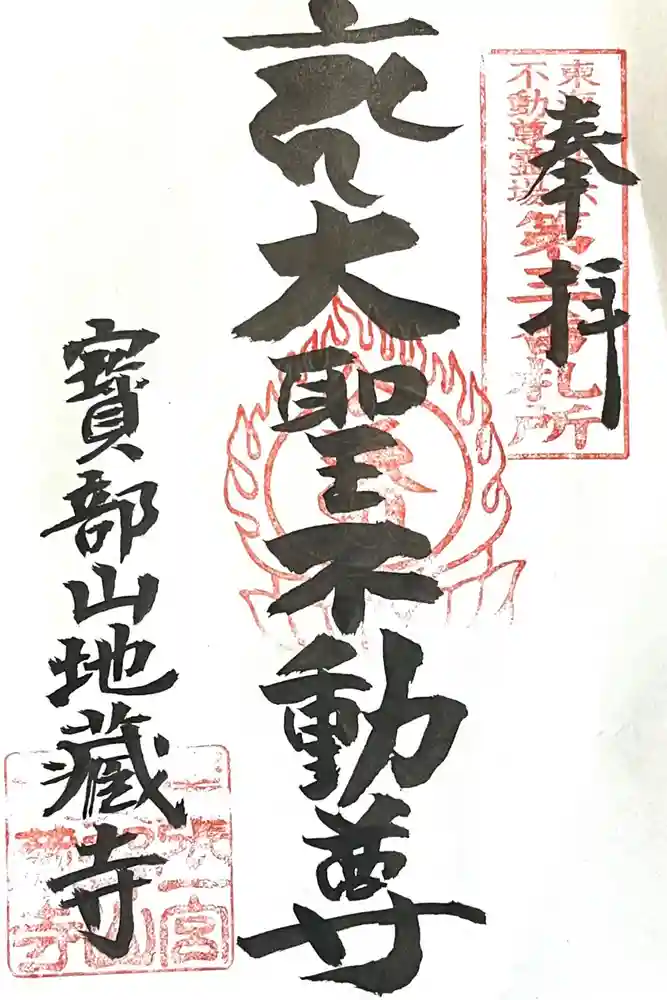 奉拝
東
不動尊霊場
第三番札所
大聖不動尊
寶部山地藏寺